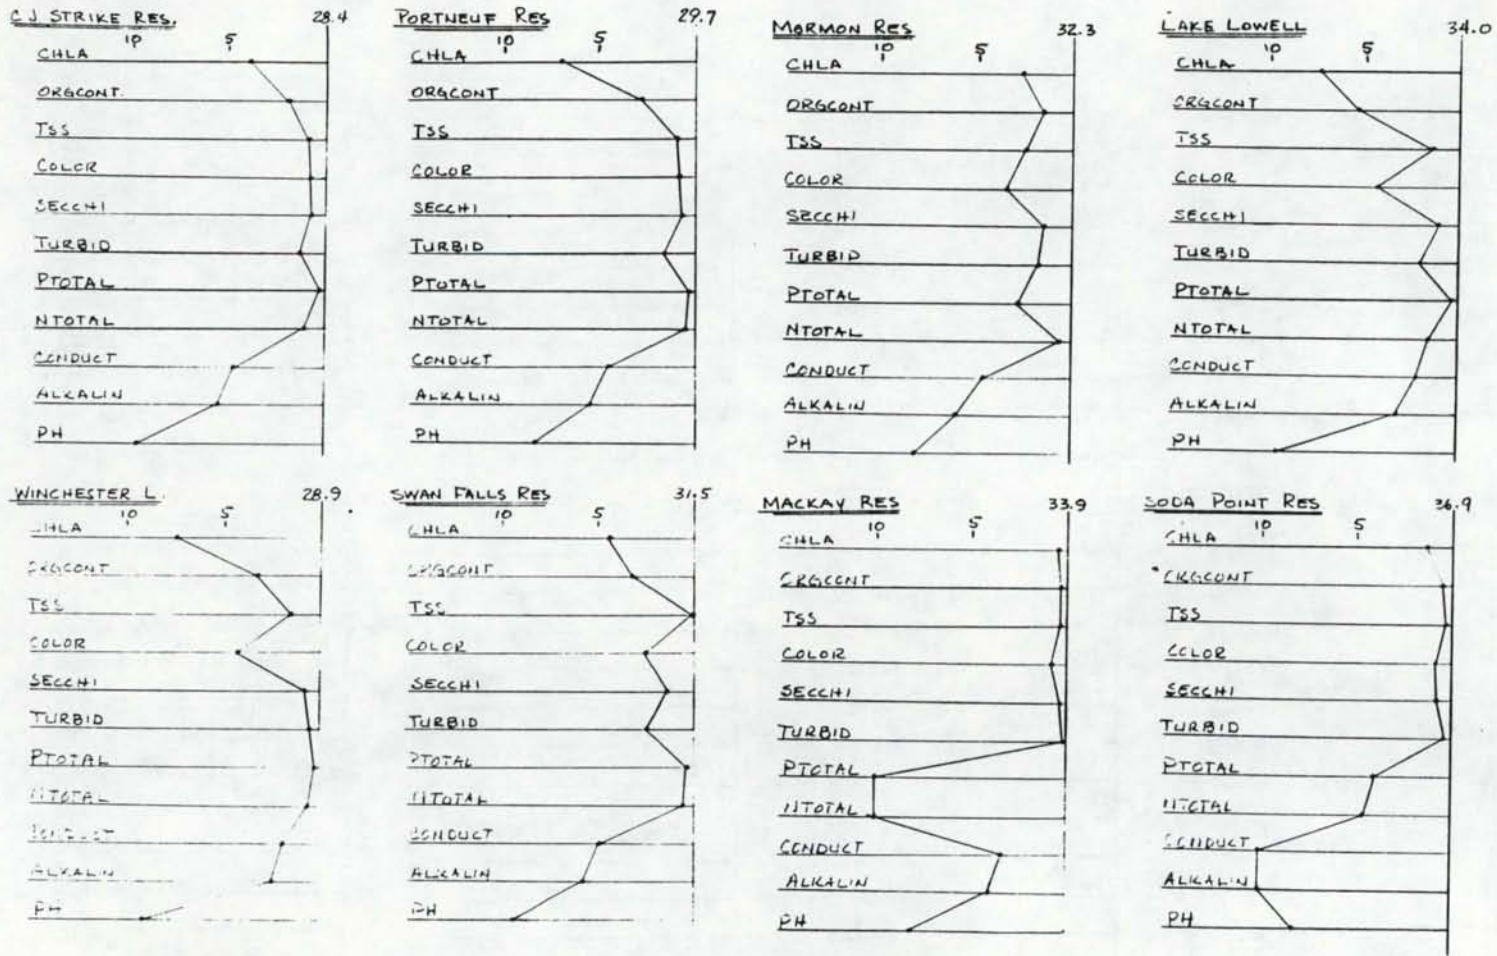 CJ STRIKE RES. 28.4
10 5
CHLA
ORGCONT.
TSS
COLOR
SECCHI
TURBID
PTOTAL
NTOTAL
CONDUCT
ALKALIN
PH
PORTNEUF RES 29.7
10 5
CHLA
ORGCONT
TSS
COLOR
SECCHI
TURBID
PTOTAL
NTOTAL
CONDUCT
ALKALIN
PH
MORMON RES 32.3
10 5
CHLA
ORGCONT
TSS
COLOR
SECCHI
TURBID
PTOTAL
NTOTAL
CONDUCT
ALKALIN
PH
LAKE LOWELL 34.0
10 5
CHLA
ORGCONT
TSS
COLOR
SECCHI
TURBID
PTOTAL
NTOTAL
CONDUCT
ALKALIN
PH
WINCHESTER L. 28.9
10 5
CHLA
ORGCONT
TSS
COLOR
SECCHI
TURBID
PTOTAL
NTOTAL
CONDUCT
ALKALIN
PH
SWAN FALLS RES 31.5
10 5
CHLA
ORGCONT
TSS
COLOR
SECCHI
TURBID
PTOTAL
NTOTAL
CONDUCT
ALKALIN
PH
MACKAY RES 33.9
10 5
CHLA
ORGCONT
TSS
COLOR
SECCHI
TURBID
PTOTAL
NTOTAL
CONDUCT
ALKALIN
PH
SODA POINT RES 36.9
10 5
CHLA
ORGCONT
TSS
COLOR
SECCHI
TURBID
PTOTAL
NTOTAL
CONDUCT
ALKALIN
PH